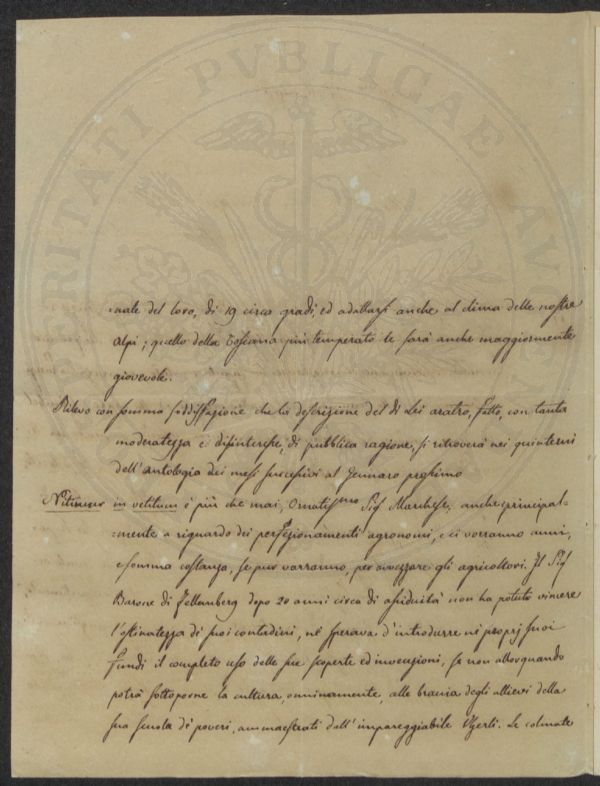 PROSPERITATI PUBLICAE AUGENDAE
:nale del loro, di 19 circa gradi, ed adattarsi anche al clima delle nostre
Alpi; quello della Toscana più temperato le sarà anche maggiormente
giovevole.
Rilevo con somma soddisfazione che la descrizione del di Lei aratro, fatto, con tanta
moderatezza e disinteresse, di pubblica ragione, si ritroverà nei quinterni
dell'antologia dei mesi successivi al Jennaro prossimo
Nitimur in vetitum è più che mai, Ornatissmo Sigr Marchese, anche principal-
:mente a riguardo dei perfezionamenti agronomi, e ci vorranno anni,
e somma costanza, se pur varranno, per avvezzare gli agricoltori. Il Sigr
Barone di Fellemberg dopo 20 anni circa di assiduità non ha potuto vincere
l'ostinatezza di suoi contadini, nè sperava d'introdurre ne' proprj suoi
fundi il completo uso delle sue scoperte ed invenzioni, se non allorquando
potrà sottoporne la cultura, onninamente, alle braccia degli allievi della
sua scuola di poveri, ammaestrati dall'impareggiabile Vherli. Le colmate